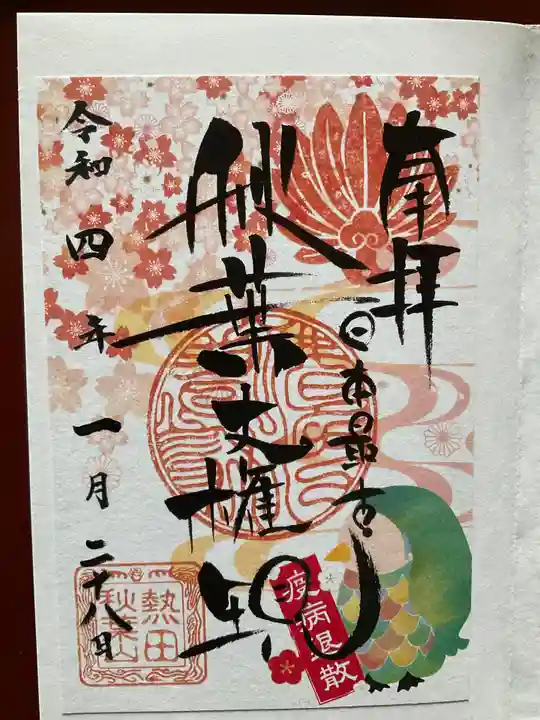 奉拝
日本最古
秋葉大権現
令和四年一月二十八日
疫病退散
熱田
秋葉山